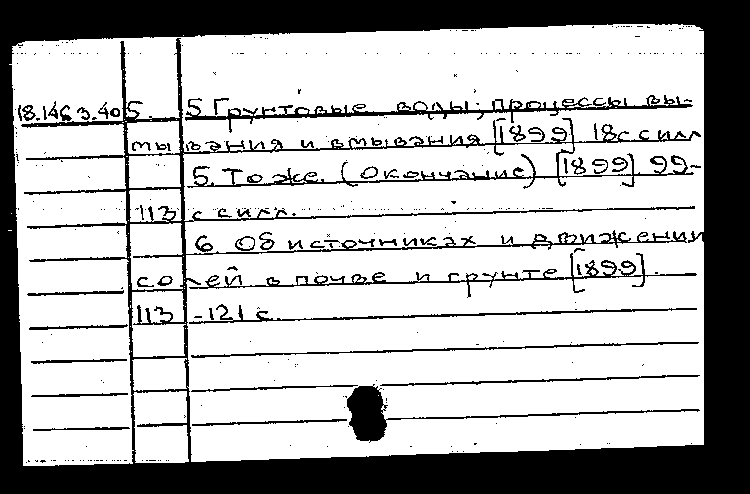 18.146 3.40 5. 5 Грунтовые воды; процессы вы-
мывания и вмывания [1899] 18 с силл
5. То же. (Окончание) [1899] 99-
113 с силл.
6 Об источниках и движении
солей в почве и грунте [1899].
113 -121 с.